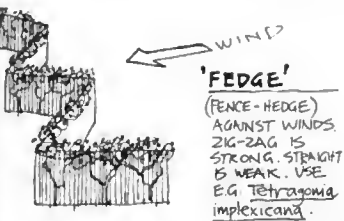 WIND
'FEDGE'
(FENCE-HEDGE)
AGAINST WINDS.
ZIG-ZAG IS
STRONG. STRAIGHT
IS WEAK. USE
E.G. Tetragonia
implexicana.